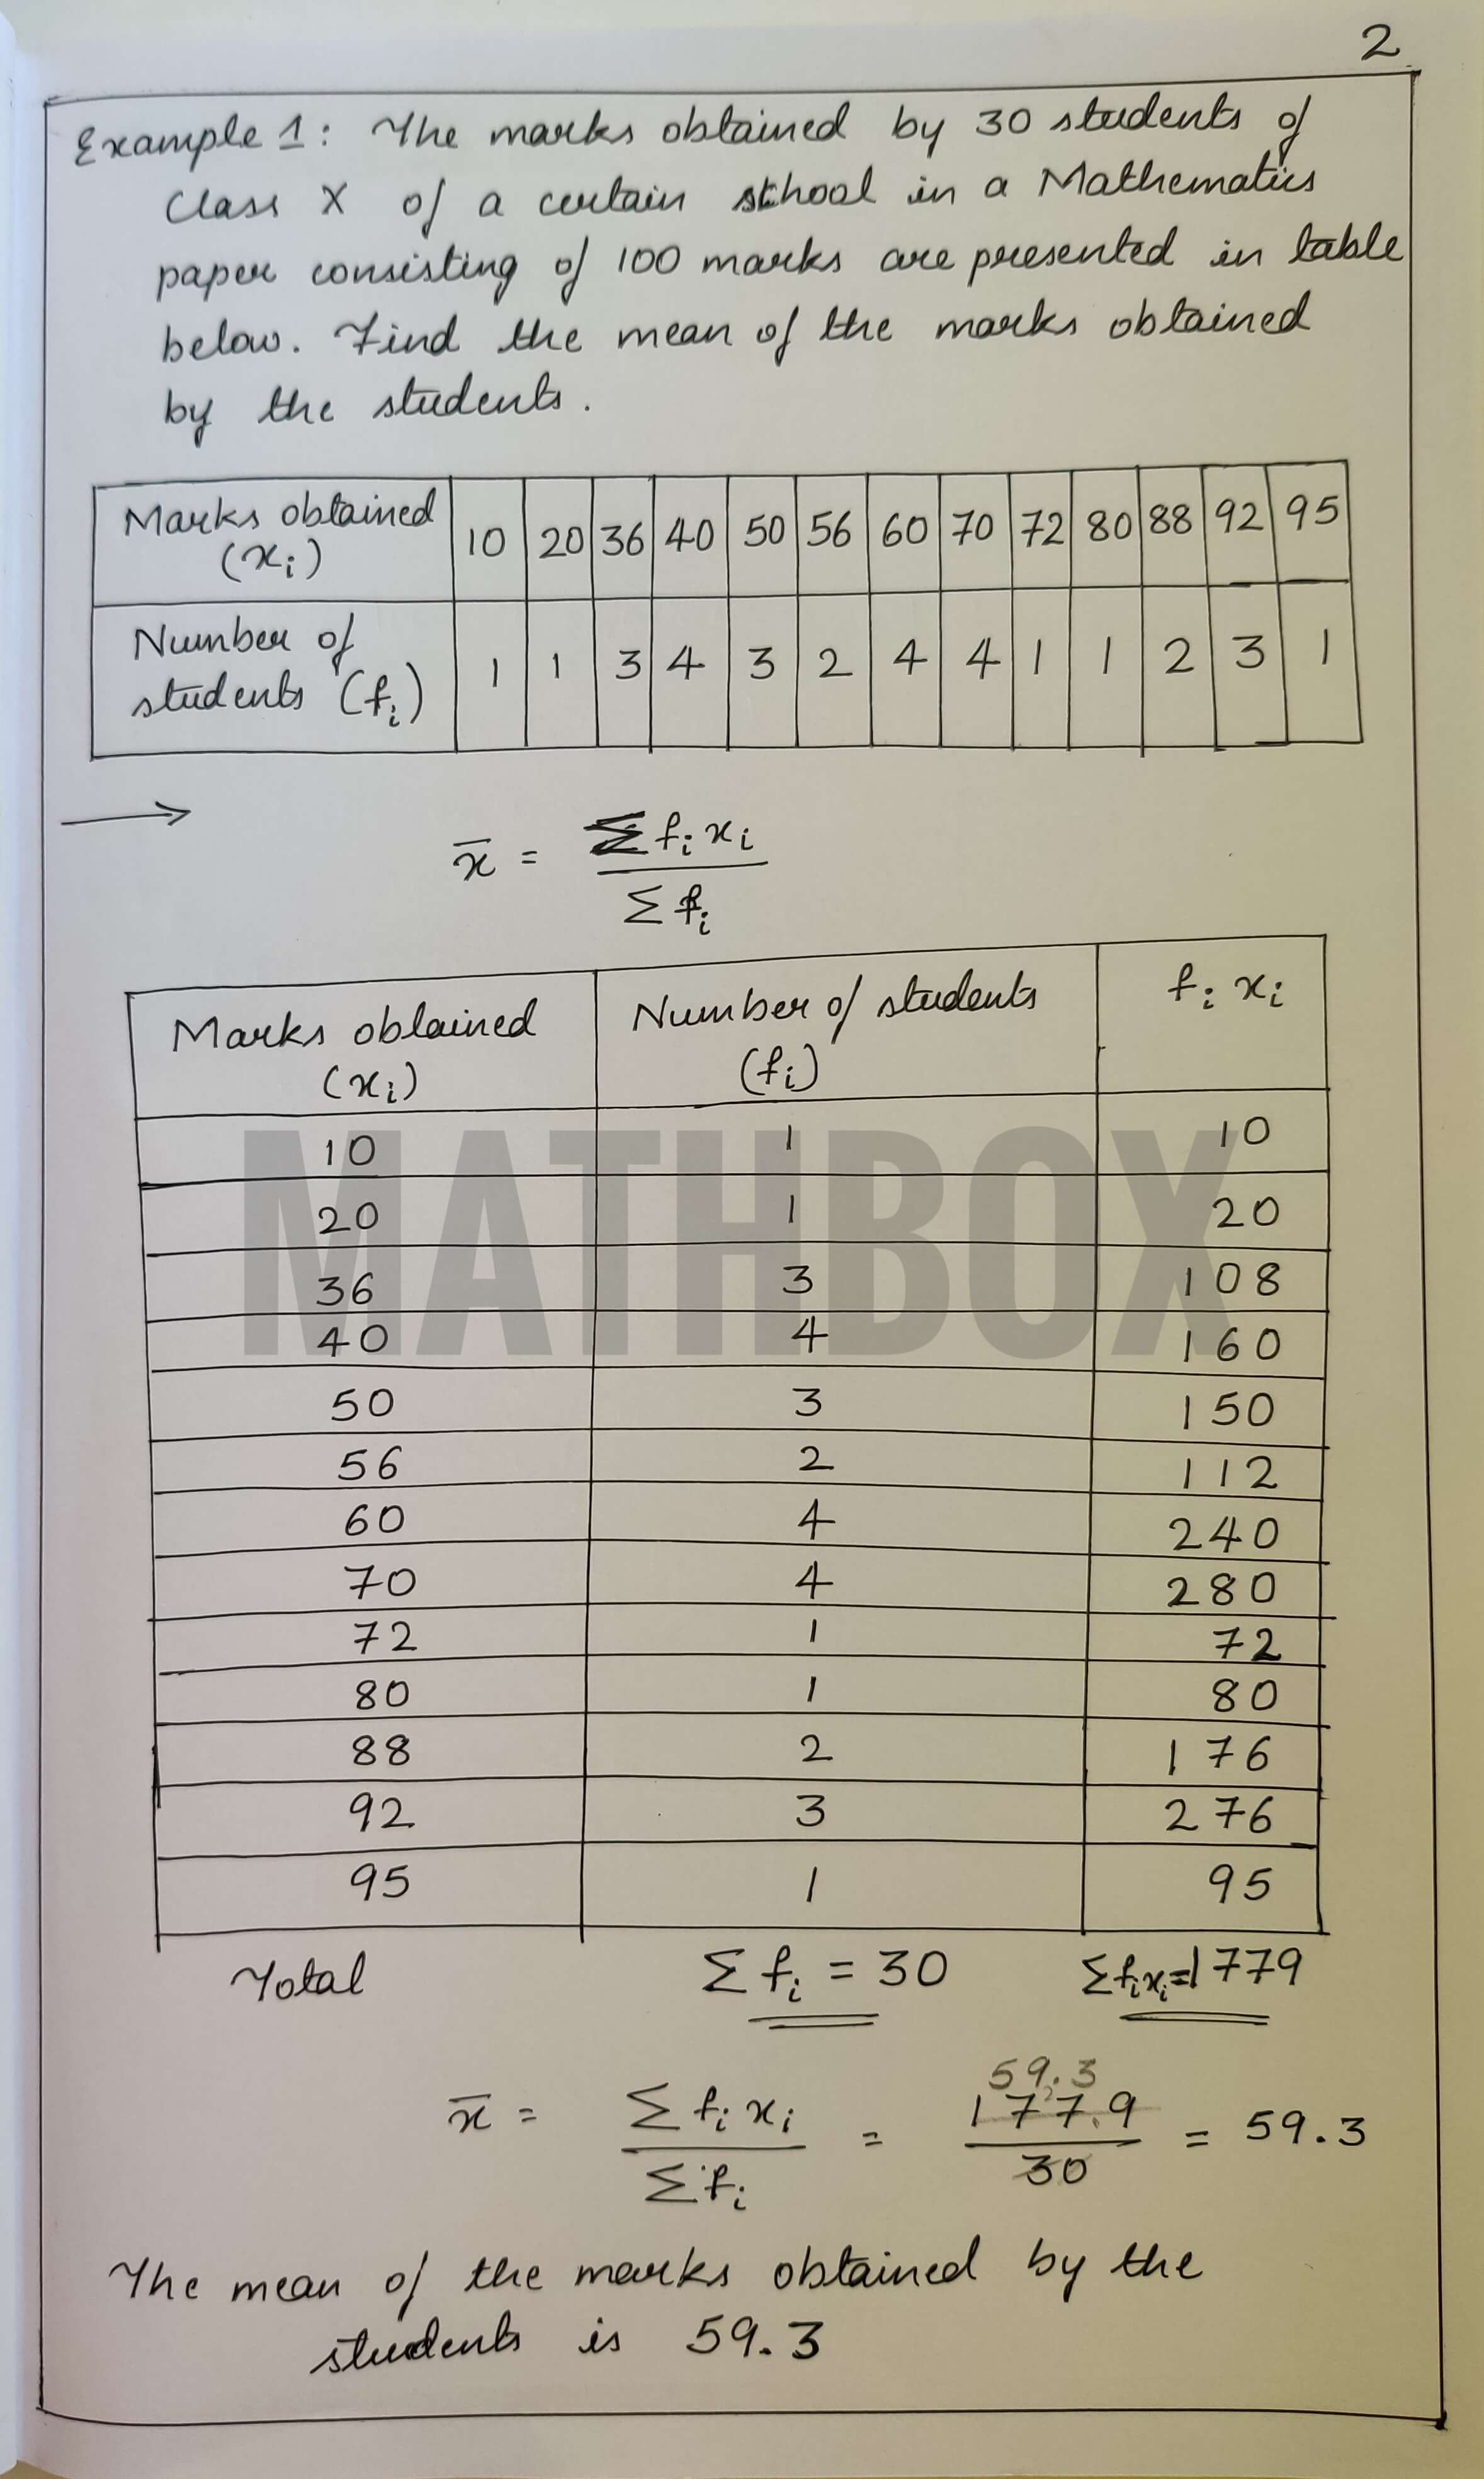 2
Example 1: The marks obtained by 30 students of
Class X of a certain school in a Mathematics
paper consisting of 100 marks are presented in table
below. Find the mean of the marks obtained
by the students.
Marks obtained (xi) 10 20 36 40 50 56 60 70 72 80 88 92 95
Number of students (fi) 1 1 3 4 3 2 4 4 1 1 2 3 1
→ x̄ = Σ fi xi / Σ fi
Marks obtained (xi) Number of students (fi) fi xi
10 1 10
20 1 20
36 3 108
40 4 160
50 3 150
56 2 112
60 4 240
70 4 280
72 1 72
80 1 80
88 2 176
92 3 276
95 1 95
Total Σ fi = 30 Σ fi xi = 1779
x̄ = Σ fi xi / Σ fi = 59.3 177.9 / 30 = 59.3
The mean of the marks obtained by the
students is 59.3
MATHBOX